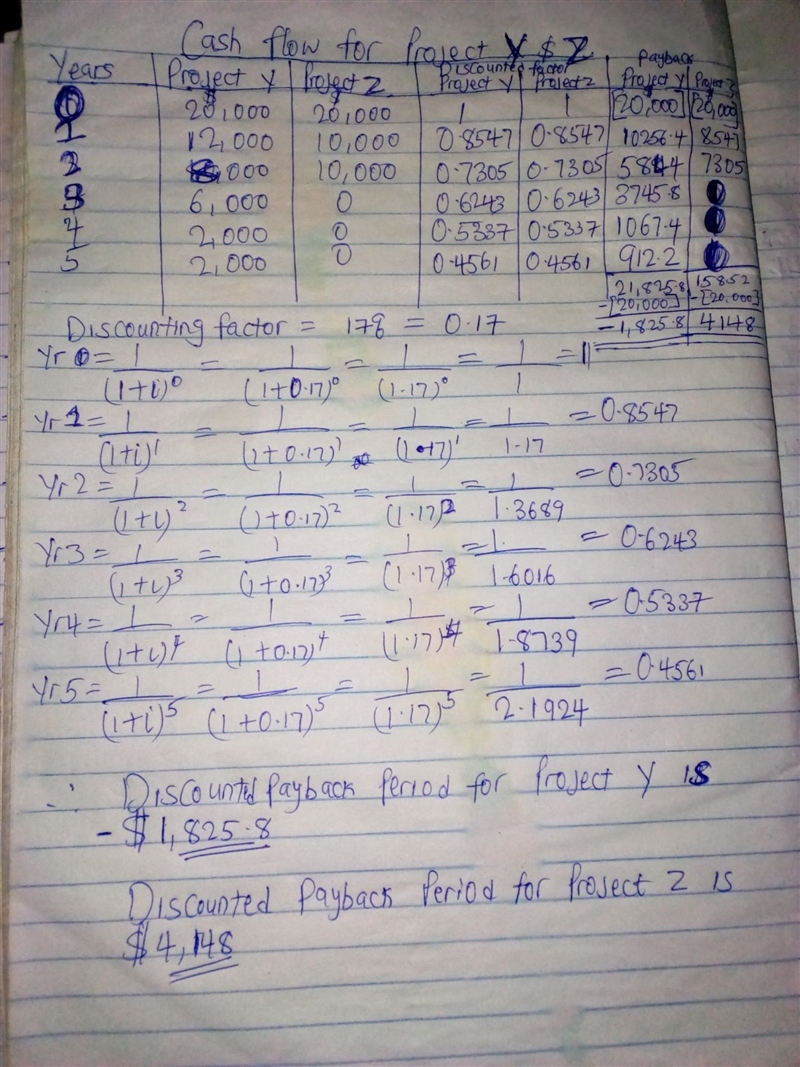 Cash flow for Project Y $ Z
Years Project Y Project Z Discounted factor Project Y Project Z Payback Project Y Project Z
0 $20,000 $20,000 1 1 [20,000] [20,000]
1 12,000 10,000 0.8547 0.8547 10256.4 8547
2 ,000 10,000 0.7305 0.7305 5844 7305
3 6,000 0 0.6243 0.6243 3745.8 0
4 2,000 0 0.5337 0.5337 1067.4 0
5 2,000 0 0.4561 0.4561 912.2 0
21,825.8 15852
-[20,000] -[20,000]
-1,825.8 4148
Discounting factor = 178 = 0.17
Yr 0 = 1/(1+i)^0 = 1/(1+0.17)^0 = 1/(1.17)^0 = 1/1 = 1
Yr 1 = 1/(1+i)^1 = 1/(1+0.17)^1 = 1/(1.17)^1 = 1/1.17 = 0.8547
Yr 2 = 1/(1+i)^2 = 1/(1+0.17)^2 = 1/(1.17)^2 = 1/1.3689 = 0.7305
Yr3 = 1/(1+i)^3 = 1/(1+0.17)^3 = 1/(1.17)^3 = 1/1.6016 = 0.6243
Yr4 = 1/(1+i)^4 = 1/(1+0.17)^4 = 1/(1.17)^4 = 1/1.8739 = 0.5337
Yr5 = 1/(1+i)^5 = 1/(1+0.17)^5 = 1/(1.17)^5 = 1/2.1924 = 0.4561
∴ Discounted Payback Period for Project Y is
- $1,825.8
Discounted Payback Period for Project Z is
$4,148